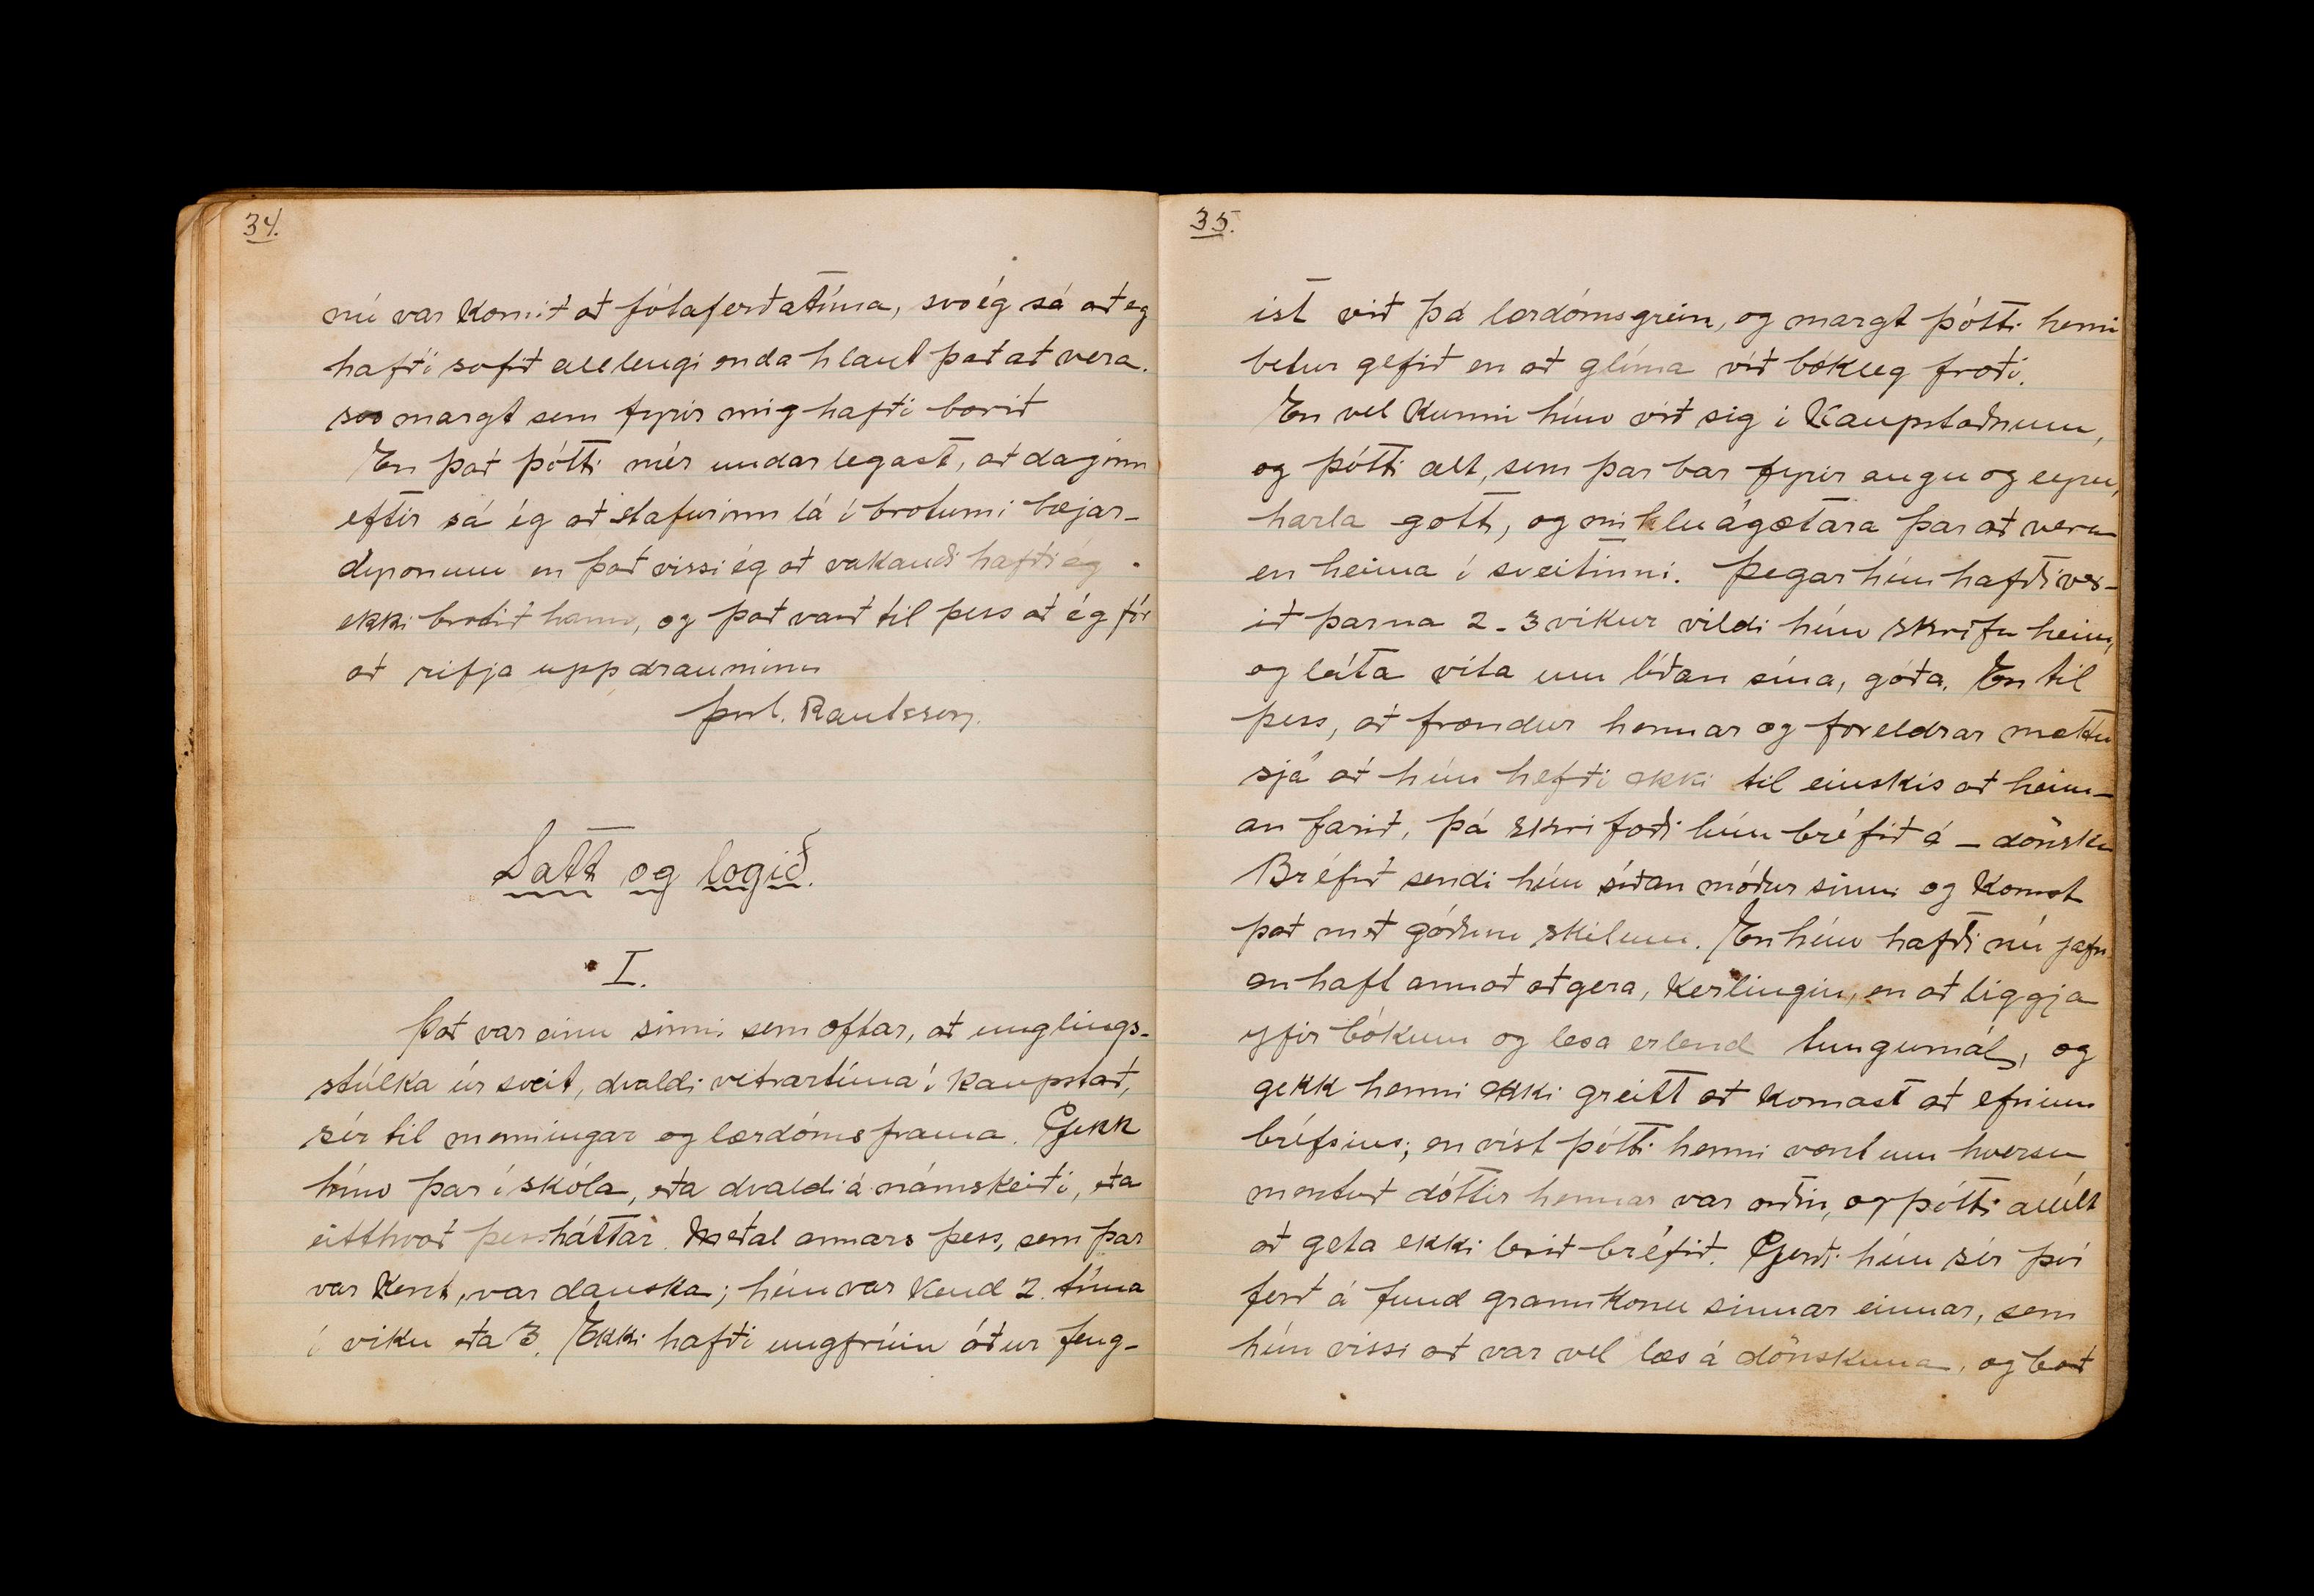 34.
nú var komið að fótaferðatíma, svo ég sá að eg
hafði sofið all lengi enda hlaut það að vera.
svo margt sem fyrir mig hafði borið
En það þótti mér undarlegast, að daginn
eftir sá ég að stafurinn lá í brotum í bæjar-
dyronum en það vissi ég að vakandi hafði ég
ekki brotið hann, og það varð til þess að ég fór
að rifja upp drauminn
Þorl. Rautsson.
Satt og logið.
I.
Það var einu sinni sem oftar, að unglings-
stúlka úr sveit, dvaldi vetrartíma í kaupstað,
sér til menningar og lærdóms frama. Gekk
hún þar í skóla, eða dvaldi á námskeiði, eða
eitthvað þessháttar. Meðal annars þess, sem þar
var kent, var danska; hún var kend 2 tíma
í viku eða 3. Ekki hafði ungfrúin áður feng-
35.
ist við þá lærdómsgrein, og margt þótti henni
betur gefið en að glíma við bókleg fræði.
En vel kunni hún við sig í kaupstaðnum,
og þótti alt, sem þar bar fyrir augu og eyru,
harla gott, og miklu ágætara þar að vera
en heima í sveitinni. Þegar hún hafði ver-
ið þarna 2-3 vikur vildi hún skrifa heim,
og láta vita um líðan sína, góða. En til
þess, að frændur hennar og foreldrar mættu
sjá að hún hefði ekki til einskis að heim-
an farið, þá skrifaði hún bréfið á - dönsku
Bréfið sendi hún síðan móður sinni og komst
það með góðum skilum. En hún hafði nú jafn
an haft annað að gera, kerlingin, en að liggja
yfir bókum og lesa erlend tungumál, og
gekk henni ekki greitt að komast að efninu
bréfsins; en víst þótti henni vænt um hversu
mentuð dóttir hennar var orðin, og þótti allílt
að geta ekki lesið bréfið. Gerði hún sér því
ferð á fund grannkonu sinnar einnar, sem
hún vissi að var vel læs á dönskuna, og bað